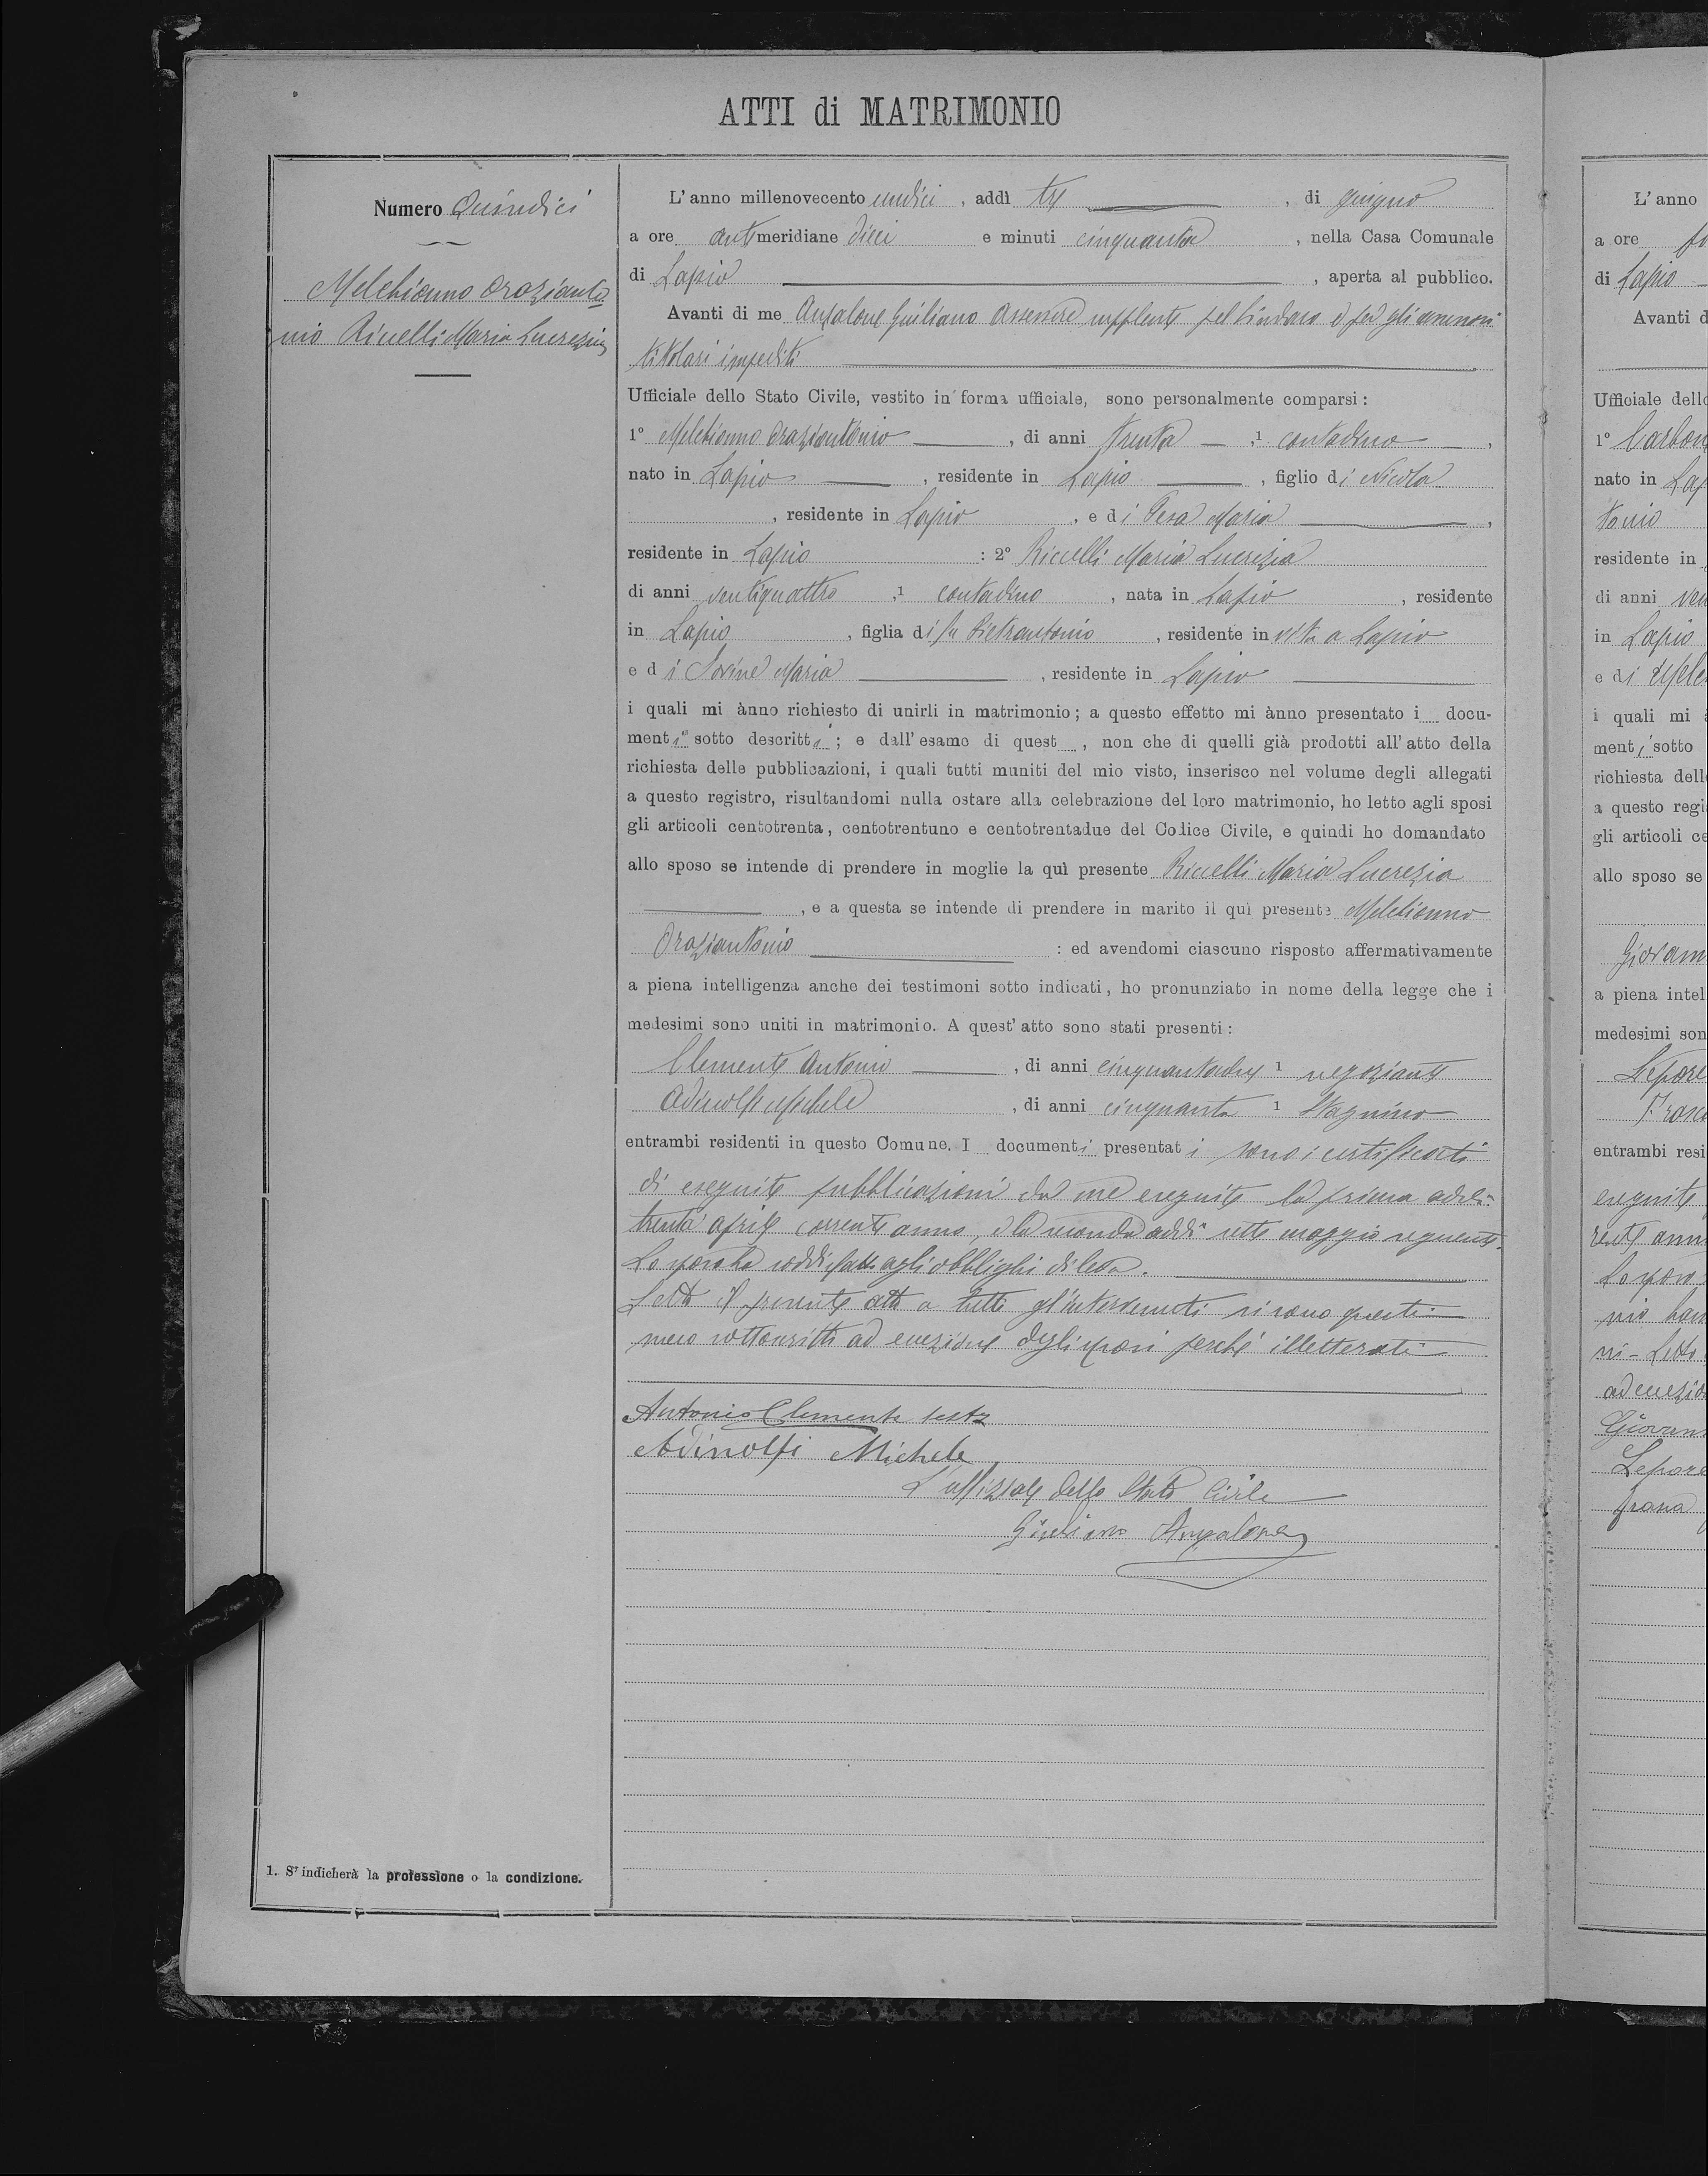 ATTI di MATRIMONIO
Numero Quindici
Melchionno Orazianto
nio Riccelli Maria Lucrezia
1. S'indicherà la professione o la condizione.
L'anno millenovecento undici, addì tre, di giugno
a ore antimeridiane dieci e minuti cinquanta, nella Casa Comunale
di Lapio, aperta al pubblico.
Avanti di me Anzalone Giuliano Assessore supplente pel Sindaco e per gli assessori
titolari impediti
Ufficiale dello Stato Civile, vestito in forma ufficiale, sono personalmente comparsi:
1º Melchionno Oraziantonio, di anni trenta, 1 contadino,
nato in Lapio, residente in Lapio, figlio di Nicola
, residente in Lapio, e di Maria,
residente in Lapio: 2º Riccelli Maria Lucrezia
di anni ventiquattro, 1 contadino, nata in Lapio, residente
in Lapio, figlia di fu Pietrantonio, residente in vita a Lapio
e di Maria, residente in Lapio
i quali mi ànno richiesto di unirli in matrimonio; a questo effetto mi ànno presentato i docu-
menti sotto descritti; e dall'esame di quest, non che di quelli già prodotti all'atto della
richiesta delle pubblicazioni, i quali tutti muniti del mio visto, inserisco nel volume degli allegati
a questo registro, risultandomi nulla ostare alla celebrazione del loro matrimonio, ho letto agli sposi
gli articoli centotrenta, centotrentuno e centotrentadue del Codice Civile, e quindi ho domandato
allo sposo se intende di prendere in moglie la quì presente Riccelli Maria Lucrezia
, e a questa se intende di prendere in marito il quì presente Melchionno
Oraziantonio: ed avendomi ciascuno risposto affermativamente
a piena intelligenza anche dei testimoni sotto indicati, ho pronunziato in nome della legge che i
medesimi sono uniti in matrimonio. A quest'atto sono stati presenti:
Clemente Antonio, di anni cinquantadue 1 negoziante
Adinolfi Michele, di anni cinquanta 1 Stagnino
entrambi residenti in questo Comune. I documenti presentati sono i certificati
di eseguite pubblicazioni da me eseguite la prima addì
trenta aprile corrente anno, e la seconda addì sette maggio seguente.
Lo sposo ha soddisfatto agli obblighi di leva.
Letto il presente atto a tutti gl'intervenuti si sono questi
meco sottoscritti ad eccezione degli sposi perchè illetterati
Antonio Clemente teste
Adinolfi Michele
L'uffiziale dello Stato Civile
Giuliano Anzalone
L'anno
a ore
di Lapio
Avanti d
Ufficiale dello
1º Carbon
nato in Lap
tonio
residente in
di anni ven
in Lapio
e di Melc
i quali mi
menti sotto
richiesta dell
a questo regi
gli articoli ce
allo sposo se
Giovann
a piena intel
medesimi son
Lepore
entrambi resi
eseguite
rente ann
Lo sposo
ni - Letto
ad eccezio
Giovann
Lepore